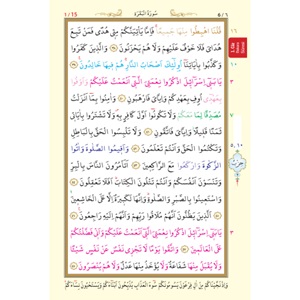 سورة البقرة
قلنا اهبطوا منها جميعا فإما يأتينكم مني هدى فمن تبع
هداي فلا خوف عليهم ولا هم يحزنون والذين كفروا
وكذبوا بآياتنا أولئك أصحاب النار هم فيها خالدون
يا بني إسرائيل اذكروا نعمتي التي أنعمت عليكم وأوفوا
بعهدي أوف بعهدكم وإياي فارهبون وآمنوا بما أنزلت
مصدقا لما معكم ولا تكونوا أول كافر به ولا تشتروا بآياتي
ثمنا قليلا وإياي فاتقون ولا تلبسوا الحق بالباطل
وتكتموا الحق وأنتم تعلمون وأقيموا الصلوة وآتوا
الزكوة واركعوا مع الراكعين أتأمرون الناس بالبر
وتنسون أنفسكم وأنتم تتلون الكتاب أفلا تعقلون
واستعينوا بالصبر والصلوة وإنها لكبيرة إلا على الخاشعين
الذين يظنون أنهم ملاقوا ربهم وأنهم إليه راجعون
يا بني إسرائيل اذكروا نعمتي التي أنعمت عليكم وأني فضلتكم
على العالمين واتقوا يوما لا تجزي نفس عن نفس شيئا
ولا يقبل منها شفاعة ولا يؤخذ منها عدل ولا هم ينصرون